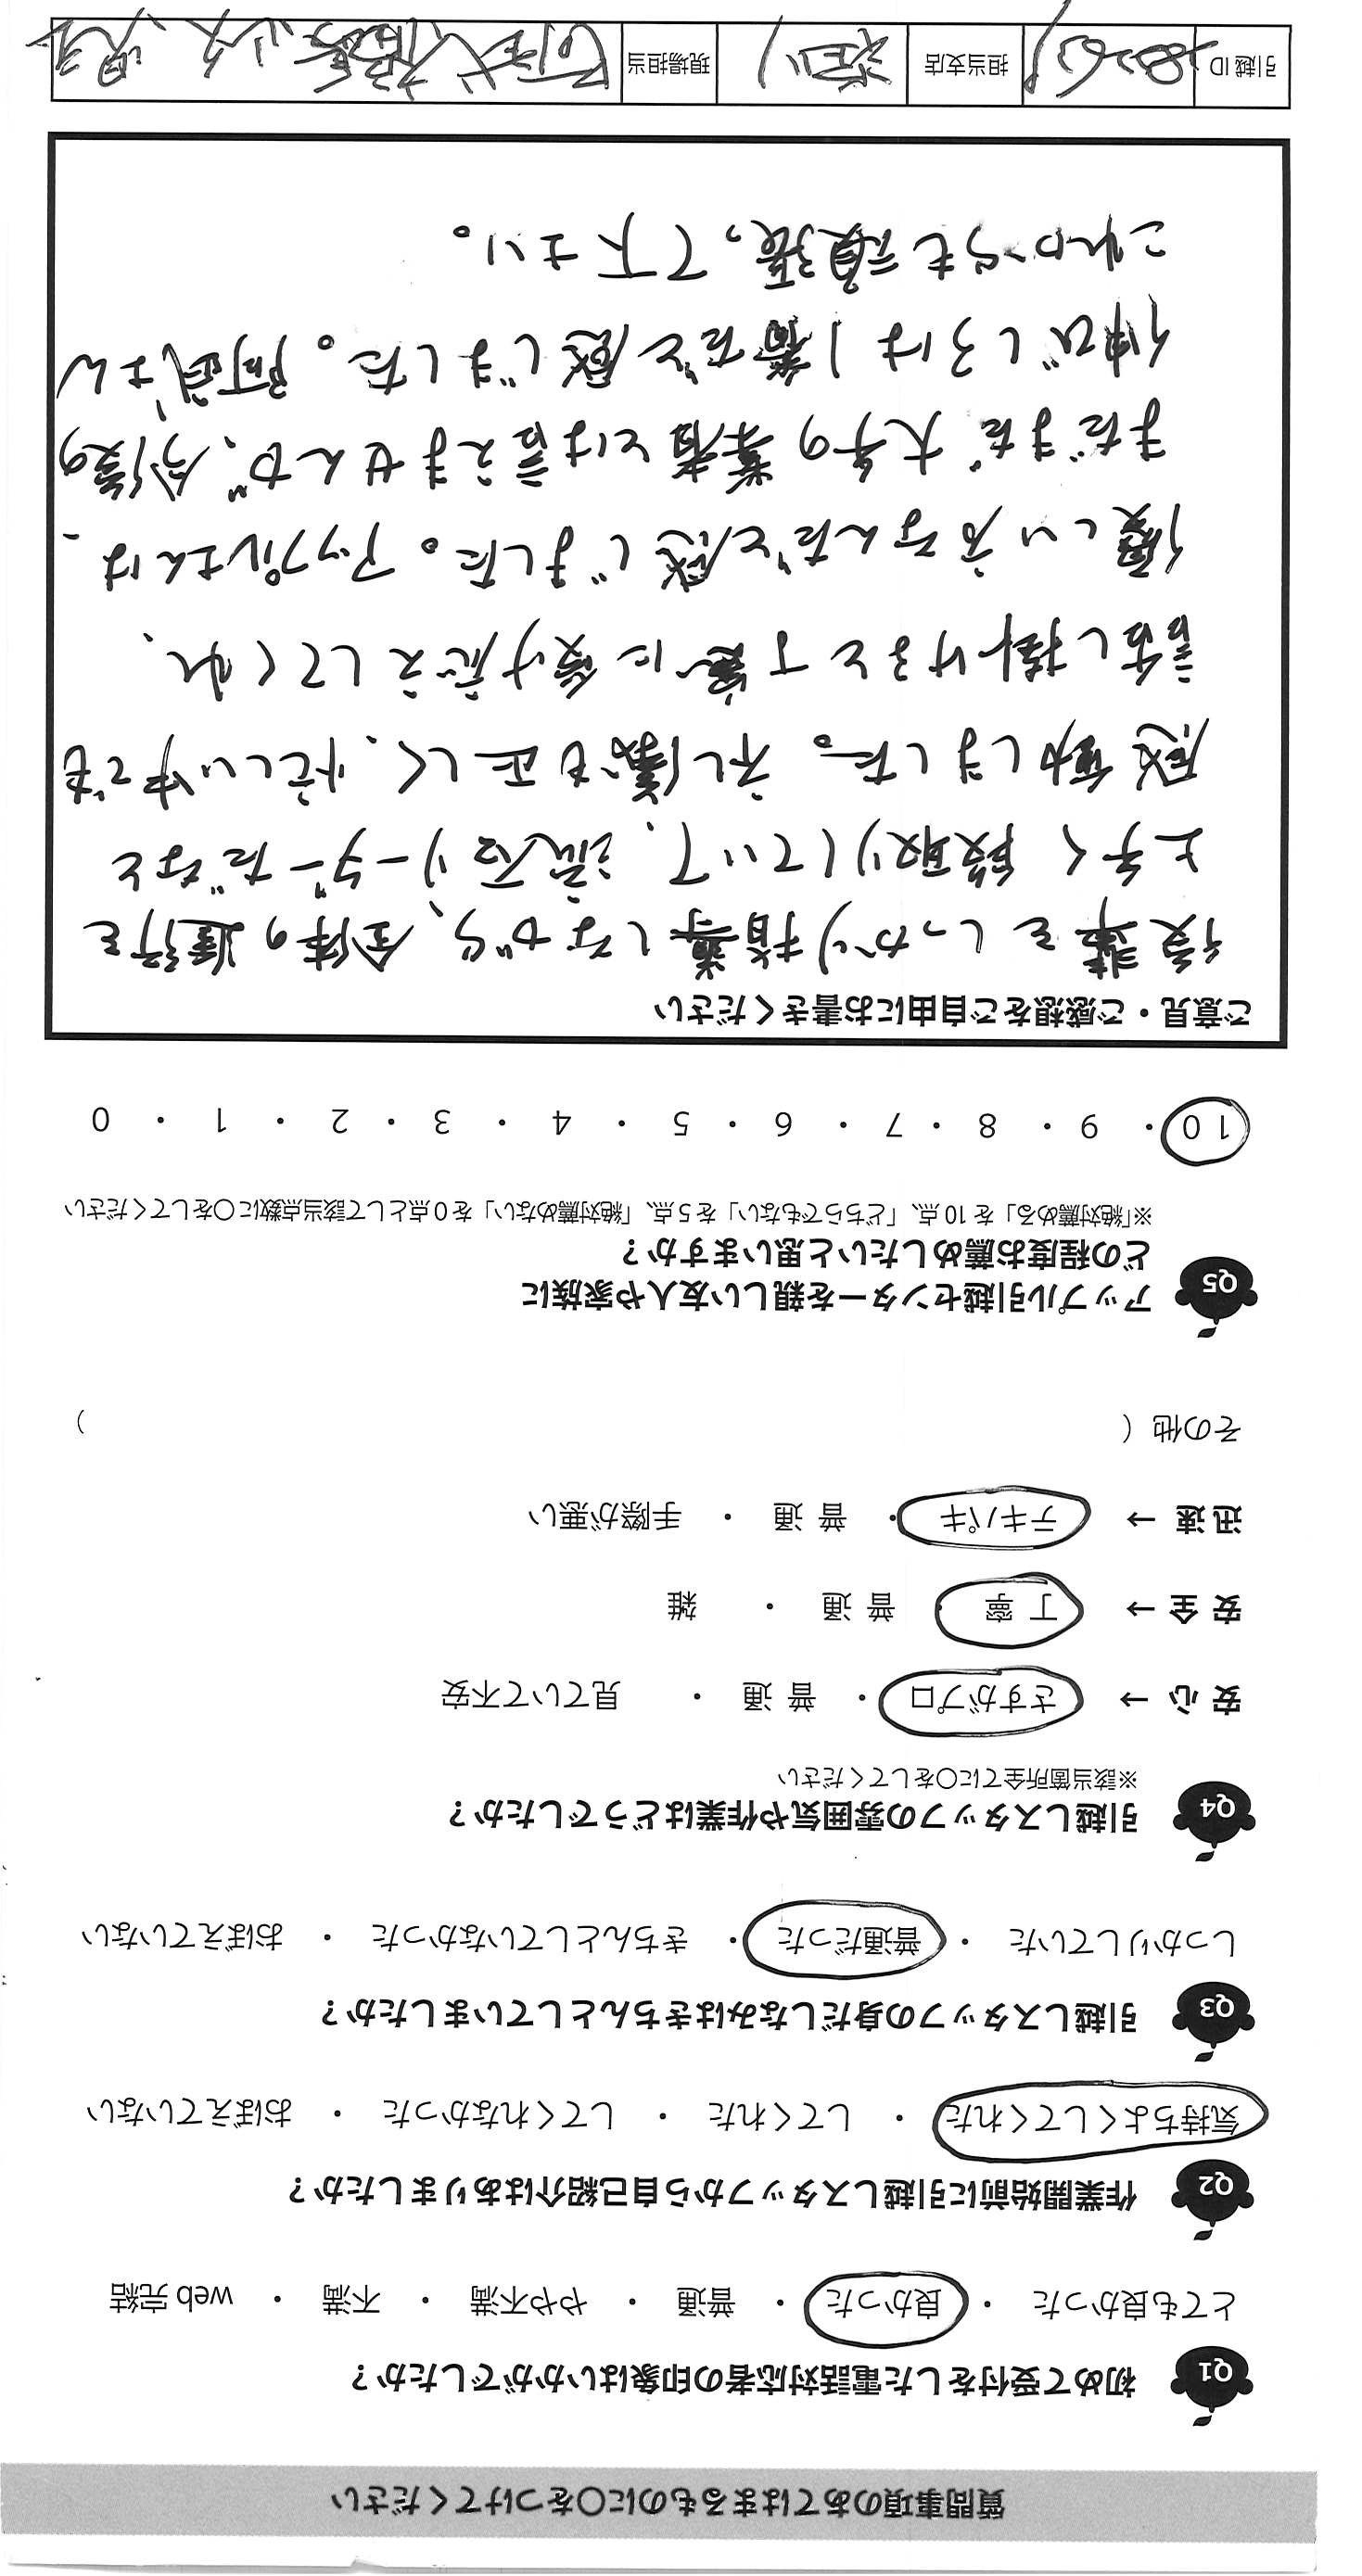 質問事項のあてはまるものに○をつけてください
Q1 初めて受付をした電話対応者の印象はいかがでしたか?
とても良かった ・ 良かった ・ 普通 ・ やや不満 ・ 不満 ・ web 完結
Q2 作業開始前に引越しスタッフから自己紹介はありましたか?
気持ちよくしてくれた ・ してくれた ・ してくれなかった ・ おぼえていない
Q3 引越しスタッフの身だしなみはきちんとしていましたか?
しっかりしていた ・ 普通だった ・ きちんとしていなかった ・ おぼえていない
Q4 引越しスタッフの雰囲気や作業はどうでしたか?
※該当箇所全てに○をしてください
安 心 → さすがプロ ・ 普 通 ・ 見ていて不安
安 全 → 丁 寧 普 通 ・ 雑
迅 速 → テキパキ ・ 普 通 ・ 手際が悪い
その他 ( )
Q5 アップル引越センターを親しい友人や家族に
どの程度お薦めしたいと思いますか?
※「絶対薦める」を 10 点、「どちらでもない」を 5 点、「絶対薦めない」を 0 点として該当点数に○をしてください
10 ・ 9 ・ 8 ・ 7 ・ 6 ・ 5 ・ 4 ・ 3 ・ 2 ・ 1 ・ 0
ご意見・ご感想をご自由にお書きください
後輩をしっかり指導しながら、全体の進行を
上手く段取りしていて、流石リーダーだなと
感動しました。礼儀も正しく、忙しい中でも
話し掛けると丁寧に受け応えしてくれ、
優しい方なんだと感じました。アップルさんは、
まだまだ大手の業者とは言えませんが、今後の
伸びしろは1番だと感じました。阿武さん
これからも頑張って下さい。
引越 ID 担当支店 現場担当 阿武